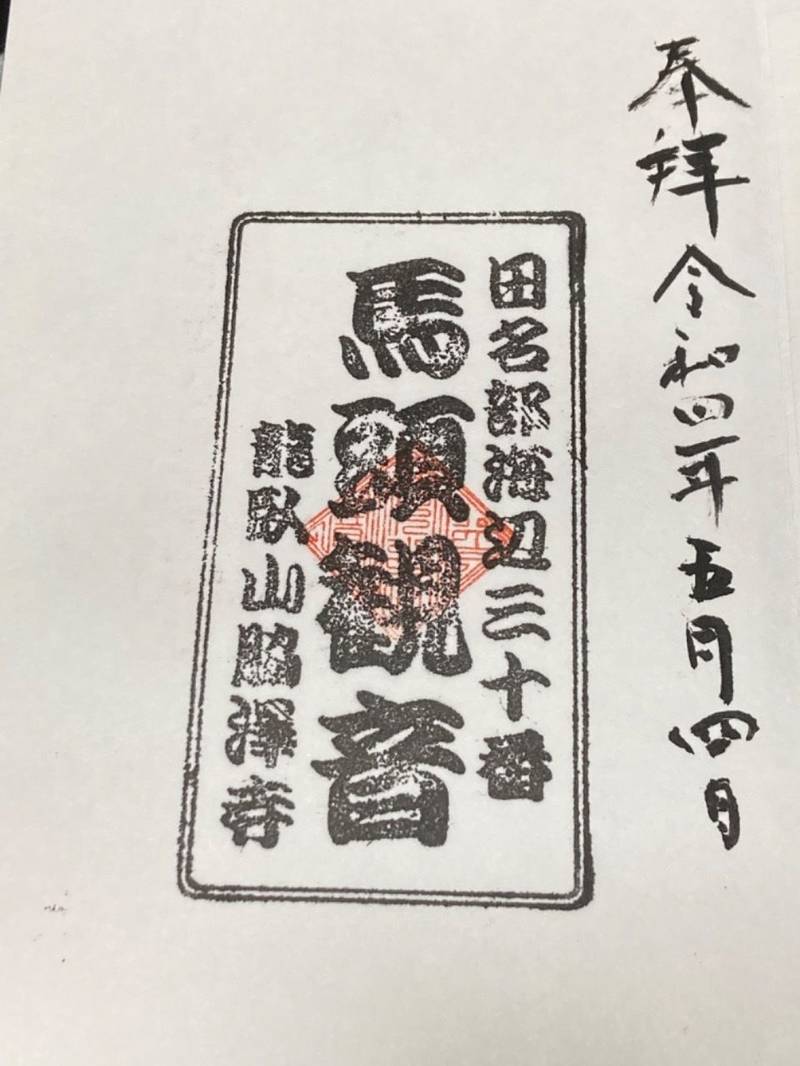 奉拝 令和四年五月四日
田名部海辺三十番
馬頭観音
龍臥山脇澤寺